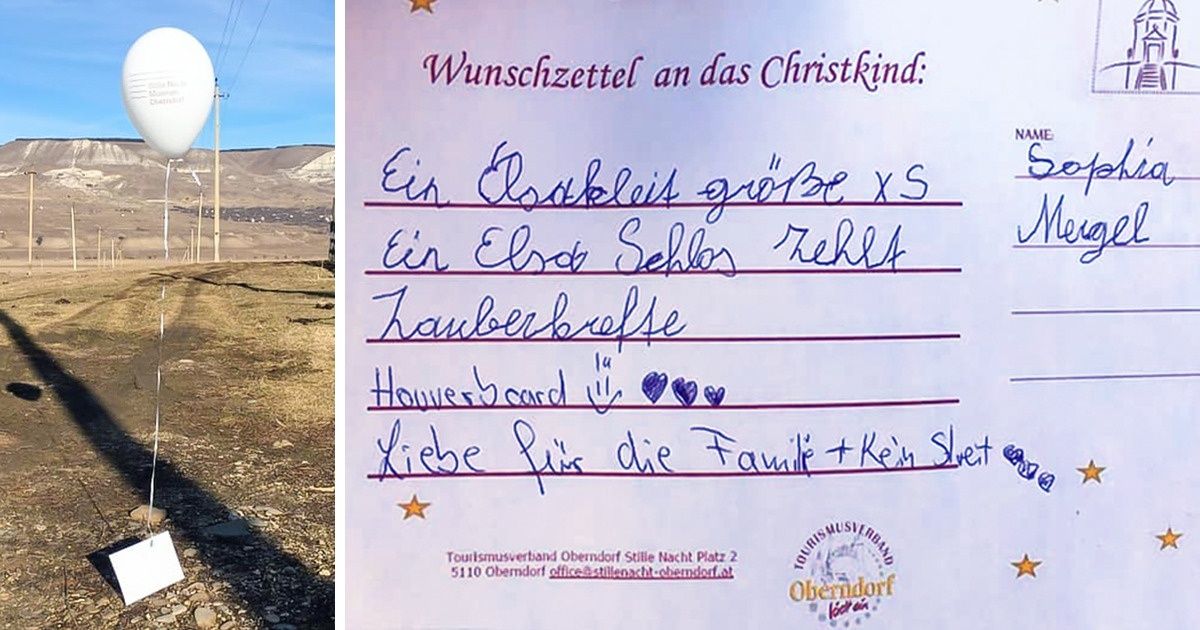 Stille Nacht
Museum
Oberndorf
Wunschzettel an das Christkind:
Ein Elsakleit größe XS
Ein Elsa Schlos
Zauberkrefte
Houverboard
Liebe für die Familie + Kein Streit
NAME:
Sophia
Mergel
Tourismusverband Oberndorf Stille Nacht Platz 2
5110 Oberndorf office@stillenacht-oberndorf.at
TOURISMUSVERBAND
Oberndorf
lädt ein